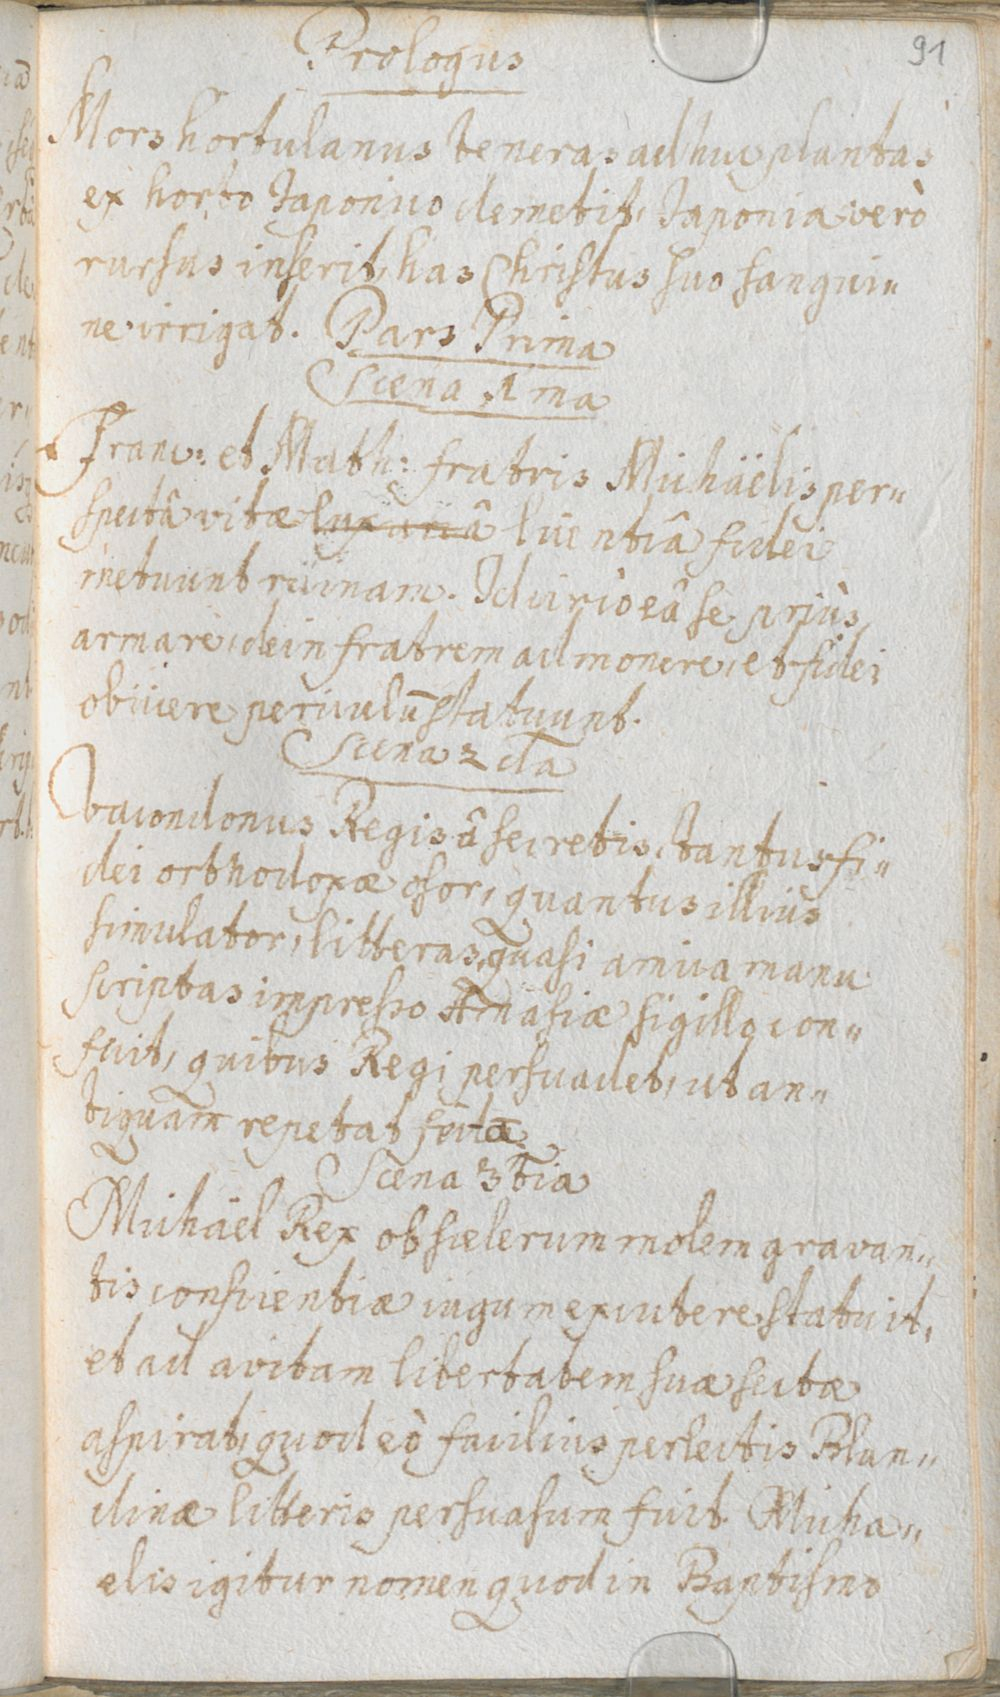 91
Prologus
Mors hortulanus teneras adhuc plantas
ex horto Japonico demetit, Japonia verò
rursus inserit, has Christus suo sangui„
ne irrigat. Pars Prima
Scena 1 ma
Franc: et Math: fratris Michäelis per„
spectâ vitæ luxuriâ licentiâ fidei
metuunt ruinam. Idcircò eâ se priùs
armare, dein fratrem admonere, et fidei
obviere periculū statuunt.
Scena 2 da
Vacondonus Regis â secretis, tantus fi„
dei orthodoxæ osor, quantus illius
simulator, litteras, quasi amica manu
scriptas impresso Amasiæ sigillo con„
fecit, quibus Regi persuadet, ut an„
tiquam repetat sectā
Scena 3 tia
Michäel Rex ob scelerum molem gravan„
tis conscientiæ iugum excutere statuit,
et ad avitam libertatem suæ sectæ
aspirat, quod eò facilius perlectis Blan„
dinæ litteris persuasum fuit. Micha„
elis igitur nomen quod in Baptismo